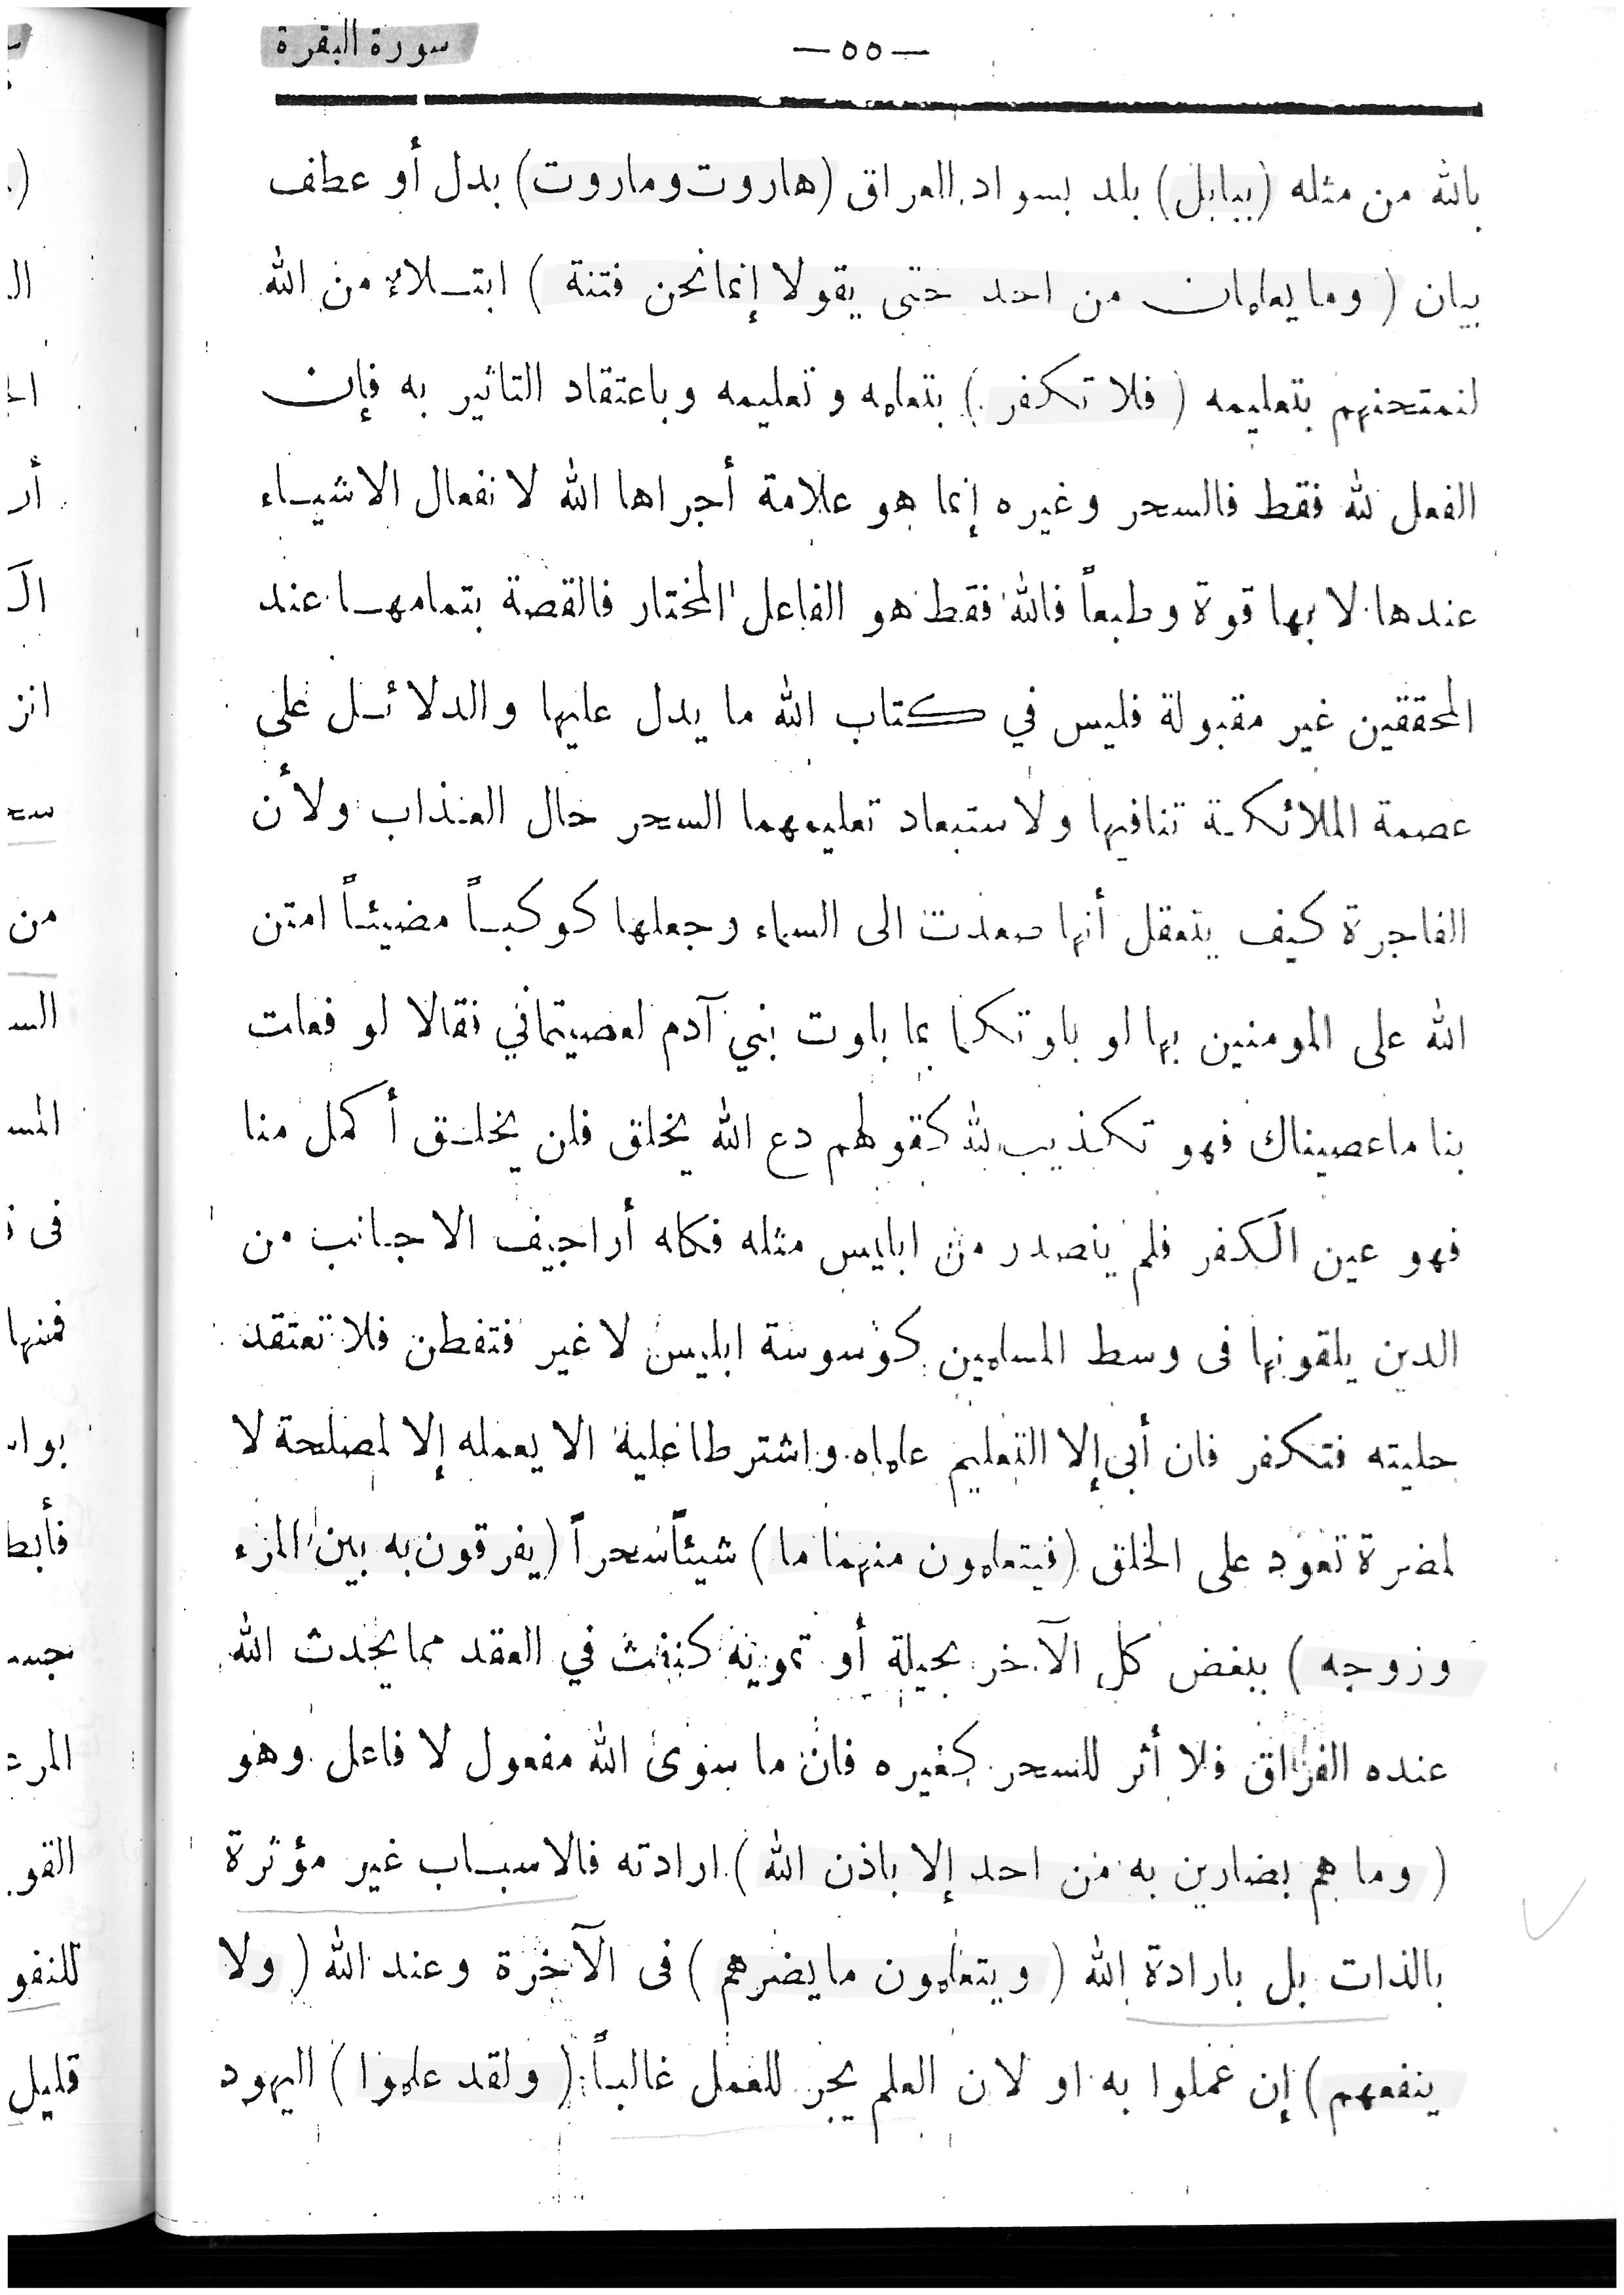 سورة البقرة
— ٥٥ —
بالله من مثله (ببابل) بلد بسواد العراق (هاروت وماروت) بدل أو عطف
بيان ( وما يعلمان من احد حتى يقولا إنما نحن فتنة ) ابتـلاء من الله
لنمتحنهم بتعليمه ( فلا تكفر ) بتعلمه وتعليمه وباعتقاد التاثير به فإن
الفعل لله فقط فالسحر وغيره إنما هو علامة أجراها الله لانفعال الاشيـاء
عندها لا بها قوة وطبعاً فالله فقط هو الفاعل المختار فالقصة بتمامهـا عند
المحققين غير مقبولة فليس في كتاب الله ما يدل عليها والدلائـل على
عصمة الملائكـة تنافيها ولاستبعاد تعليمهما السحر حال العذاب ولأن
الفاجرة كيف يتعقل أنها صعدت الى السماء وجعلها كوكبـاً مضيئـاً امتن
الله على المومنين بها لو بلوتكما بما بلوت بني آدم لعصيتماني فقالا لو فعلت
بنا ما عصيناك فهو تكذيب لله كقولهم دع الله يخلق فلن يخلـق أكمل منا
فهو عين الكفر فلم ينصدر من ابليس مثله فكله أراجيف الاجـانب من
الدين يلقونها فى وسط المسلمين كوسوسة ابليس لا غير فتفطن فلا تعتقد
حليته فتكفر فان أبى إلا التعليم علماه واشترطا عليه الا يعمله إلا لمصلحة لا
لمضرة تعود على الخلق (فيتعلمون منهما ما) شيئاً سحراً (يفرقون به بين المرء
وزوجه ) ببغض كل الآخر بحيلة أو تمويه كنفث في العقد مما يحدث الله
عنده الفراق فلا أثر للسحر كغيره فان ما سوى الله مفعول لا فاعل وهو
( وما هم بضارين به من احد إلا باذن الله ) ارادته فالاسبـاب غير مؤثرة
بالذات بل بارادة الله ( ويتعلمون ما يضرهم ) فى الآخرة وعند الله ( ولا
ينفعهم) إن عملوا به او لان العلم يجر للعمل غالبـاً ( ولقد علموا ) اليهود